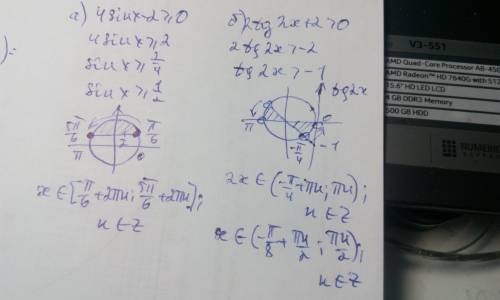 а) 4sinx-2⩾0
4sinx⩾2
sinx⩾2/4
sinx⩾1/2
5π/6 1/2 π/6
π 0
x∈[π/6+2πn; 5π/6+2πn];
n∈Z
б) 2tg2x+2>0
2tg2x>-2
tg2x>-1
tg2x
π 0
-π/4 -1
2x∈(-π/4+πn; πn);
n∈Z
x∈(-π/8+πn/2; πn/2);
n∈Z
V3-551
AMD Quad-Core Processor A8-450
AMD Radeon™ HD 7640G with 512
15.6" HD LED LCD
4 GB DDR3 Memory
500 GB HDD